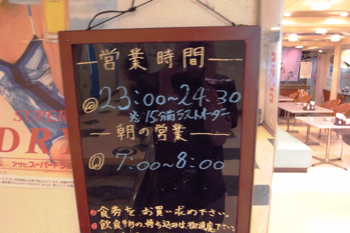 営業時間
23:00~24:30
※15分前ラストオーダー
朝の営業
7:00~8:00
食券をお買い求め下さい
飲食物の持ち込みは御遠慮下さい
SUPER
DR
アサヒスーパードラ